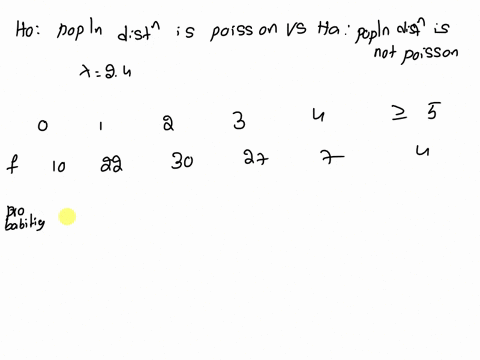 Ho: popln distⁿ is poisson vs Ha: popln distⁿ is
not poisson
λ = 2.4
0 1 2 3 4 ≥ 5
f 10 22 30 27 7 4
pro
bability